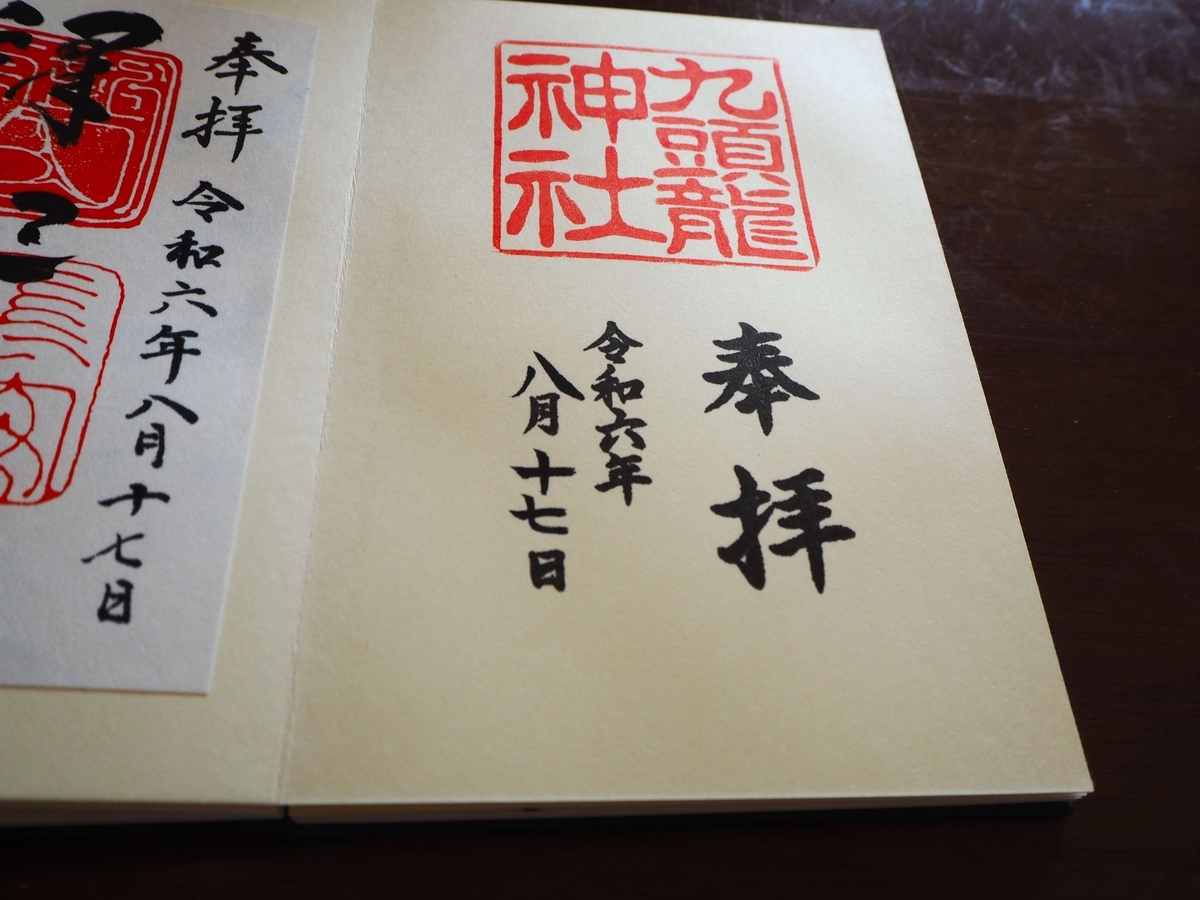 九頭龍
神社
奉拝
令和六年
八月十七日
奉拝
令和六年八月十七日